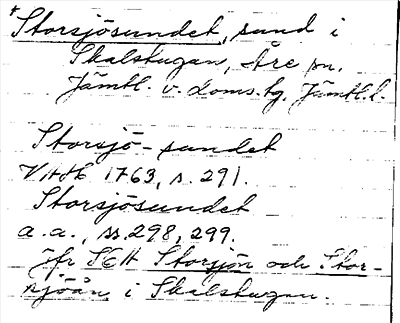 * Storsjösundet, sund i
Skalstugan, Åre sn,
Jämtl. v. doms.tg, Jämtl. l.
Storsjö-sundet
VHAH 1763, s. 291.
Storsjösundet
a.a., ss. 298, 299.
jfr Storsjön och Stor-
sjöån i Skalstugan.